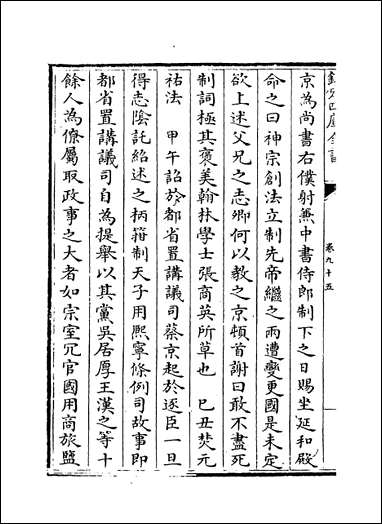 欽定四庫全書
卷九十五
京為尚書右僕射兼中書侍郎制下之日賜坐延和殿
命之曰神宗創法立制先帝繼之兩遭變更國是未定
欲上述父兄之志卿何以教之京頓首謝曰敢不盡死
制詞極其褒美翰林學士張商英所草也　己丑焚元
祐法　甲午詔於都省置講議司蔡京起於逐臣一旦
得志陰託紹述之柄箝制天子用熙寧條例司故事即
都省置講議司自為提舉以其黨吳居厚王漢之等十
餘人為僚屬取政事之大者如宗室冗官國用商旅鹽